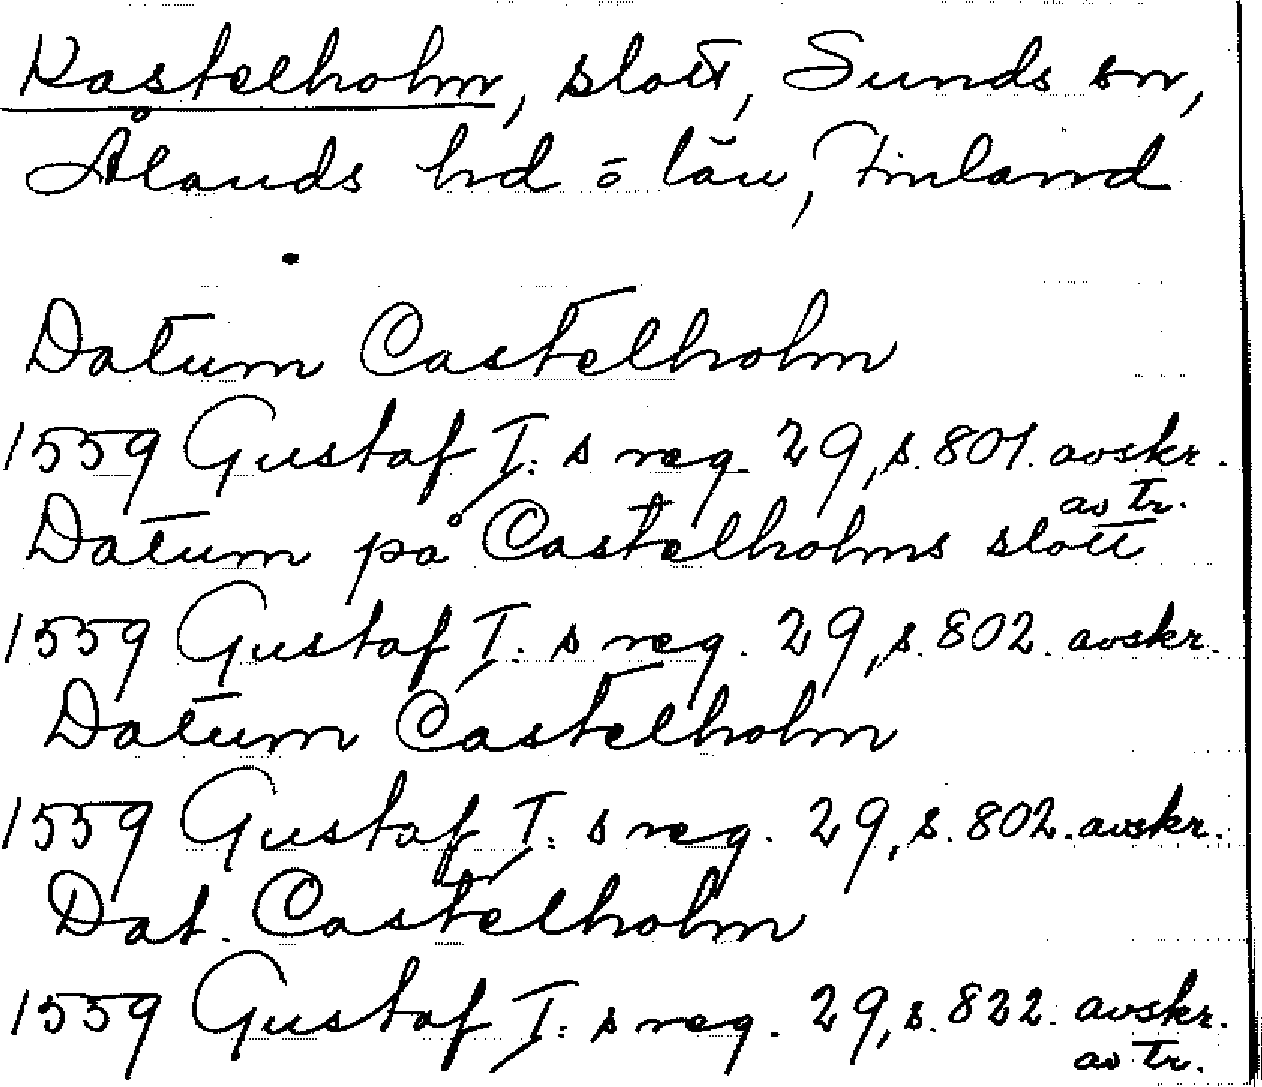 Kastelholm, slott, Sunds sn,
Ålands hd o län, Finland
Datum Castelholm
1559 Gustaf I:s reg. 29, s. 801. avskr.
av tr.
Datum på Castelholms slott
1559 Gustaf I:s reg. 29, s. 802. avskr.
Datum Castelholm
1559 Gustaf I:s reg. 29, s. 802. avskr.
Dat. Castelholm
1559 Gustaf I:s reg. 29, s. 822. avskr.
av tr.